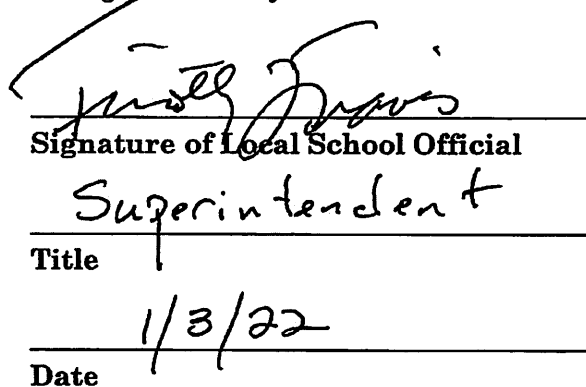 Timothy Travis
Signature of Local School Official
Superintendent
Title
1/3/22
Date